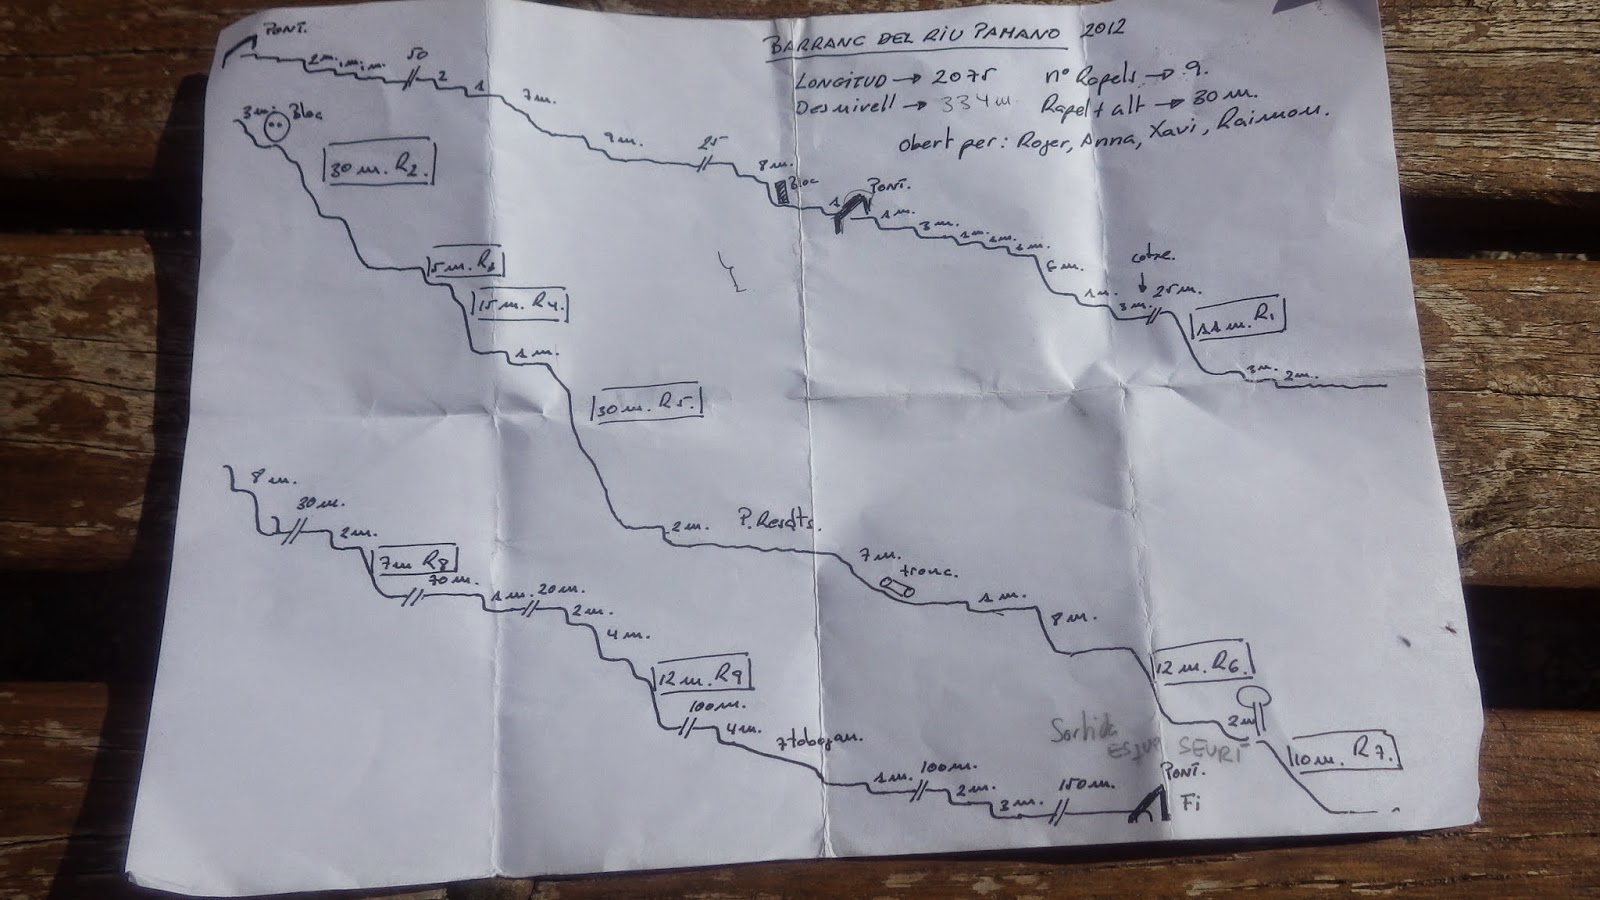 BARRANC DEL RIU PAMANO 2012
LONGITUD → 2075 nº Rapels → 9.
Desnivell → 334 m. Rapel + alt → 30 m.
Obert per: Roger, Anna, Xavi, Raimon.
PONT.
2m. 1m. 1m. 50 2 1
7m.
9m. 25
8m.
Bloc
1 PONT.
1m. 3m. 1m. 2m. 1m.
6m.
1m. 3m. 25m.
11m. R1
3m. 2m.
3m. Bloc
30m. R2.
5m. R3
15m. R4.
1m.
30m. R5.
2m. 7m.
tronc.
1m. 8m.
12m. R6.
2m
10m. R7.
8m.
30m. 2m.
7m R8
70m. 1m. 20m. 2m.
4m.
12m. R9
100m. 4m.
7tobogan.
1m. 100m. 2m. 3m. 150m.
Sortida
SEURÍ
PONT.
Fi